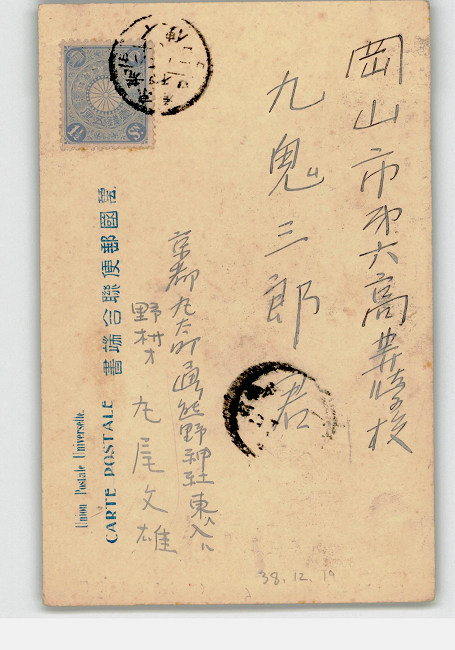 岡山市第六高等学校
九鬼三郎君
京都丸太町通熊野神社東入ル
野村方 丸尾文雄
萬國郵便聯合端書
CARTE POSTALE
Union Postale Universelle.
1½ Sn.
38.12.19